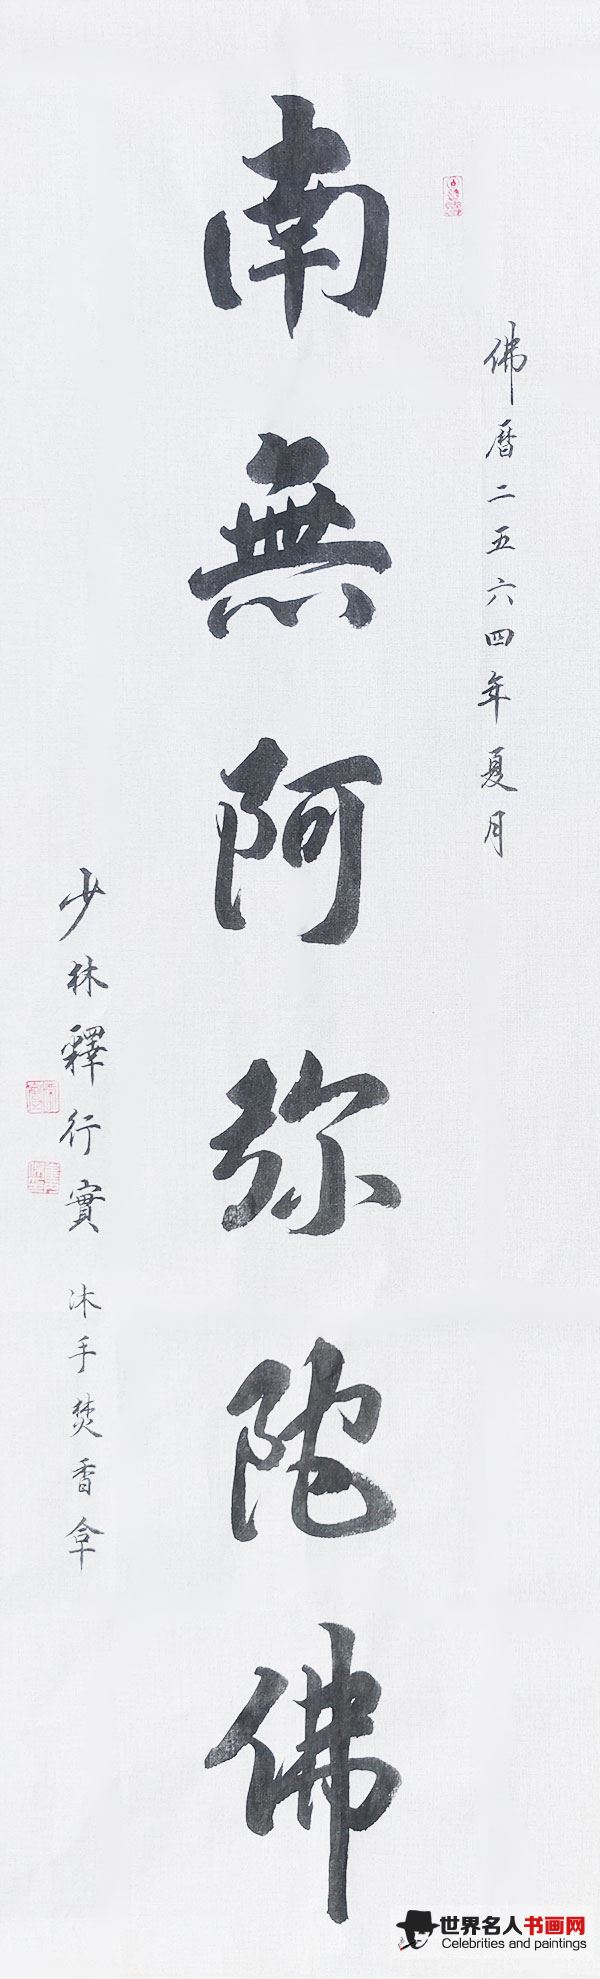 佛曆二五六四年夏月
南無阿弥陀佛
少林釋行實 沐手焚香
世界名人书画网
Celebrities and paintings